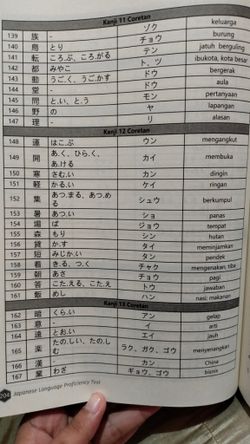 Kanji 11 Coretan
139 族 - ゾク keluarga
140 鳥 とり チョウ burung
141 転 ころ.ぶ、ころ.がる テン jatuh berguling
142 都 みやこ ト、ツ ibukota, kota besar
143 動 うご.く、うご.かす ドウ bergerak
144 堂 - ドウ aula
145 問 と.い、と.う モン pertanyaan
146 野 の ヤ lapangan
147 理 - リ alasan
Kanji 12 Coretan
148 運 はこ.ぶ ウン mengangkut
149 開 あ.く、ひら.く、あ.ける カイ membuka
150 寒 さむ.い カン dingin
151 軽 かる.い ケイ ringan
152 集 あつ.まる、あつ.める シュウ berkumpul
153 暑 あつ.い ショ panas
154 場 ば ジョウ tempat
155 森 もり シン hutan
156 貸 か.す タイ meminjamkan
157 短 みじか.い タン pendek
158 着 き.る、つ.く チャク mengenakan, tiba
159 朝 あさ チョウ pagi
160 答 こた.える、こた.え トウ jawaban
161 飯 めし ハン nasi; makanan
Kanji 13 Coretan
162 暗 くら.い アン gelap
163 意 - イ arti
164 遠 とお.い エイ jauh
165 楽 たの.しい、たの.しむ ラク、ガク、ゴウ menyenangkan
166 漢 - カン China
167 業 わざ ギョウ、ゴウ bisnis
204 Japanese Language Proficiency Test